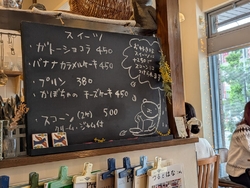 スイーツ
ガトーショコラ 450
バナナカラメルケーキ 450
プリン 380
かぼちゃのチーズケーキ 450
スコーン (2ヶ) 500
クリーム・ジャム付